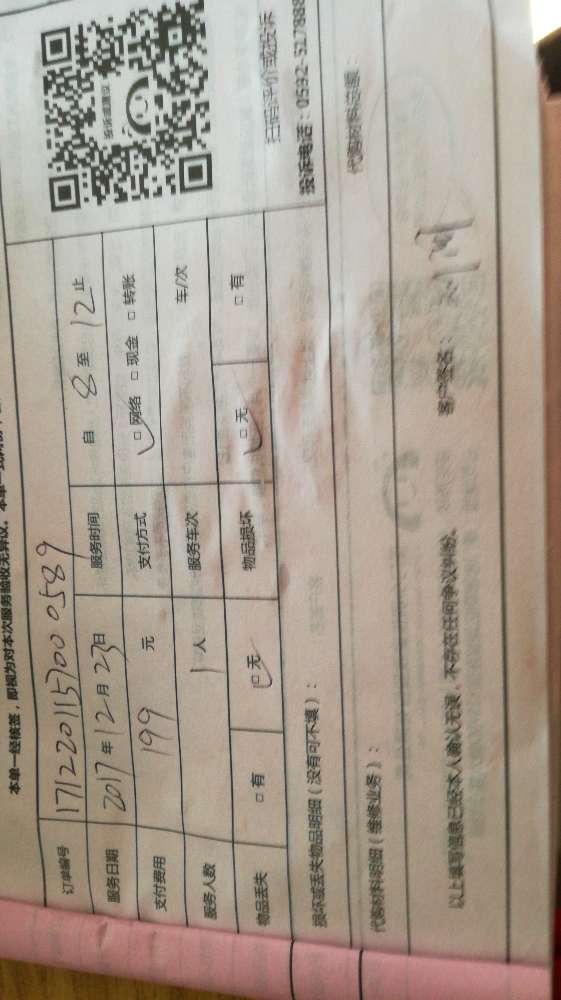 本单一经核签，即视为对本次服务验收无异议。本单一式两份，
订单编号 171220115700 0589
服务日期 2017年12月23日 服务时间 自 8 至 12 止
支付费用 199 元 支付方式 ☑网络 □现金 □转账
服务人数 1人 服务车次 车/次
物品丢失 □有 ☑无 物品损坏 ☑无 □有
扫码评价或投诉
投诉电话：0592-527888
损坏或丢失物品明细（没有可不填）：
代购材料明细（维修业务）： 代购材料总额：
以上填写信息已经本人确认无误，不存在任何争议纠纷。 客户签名：